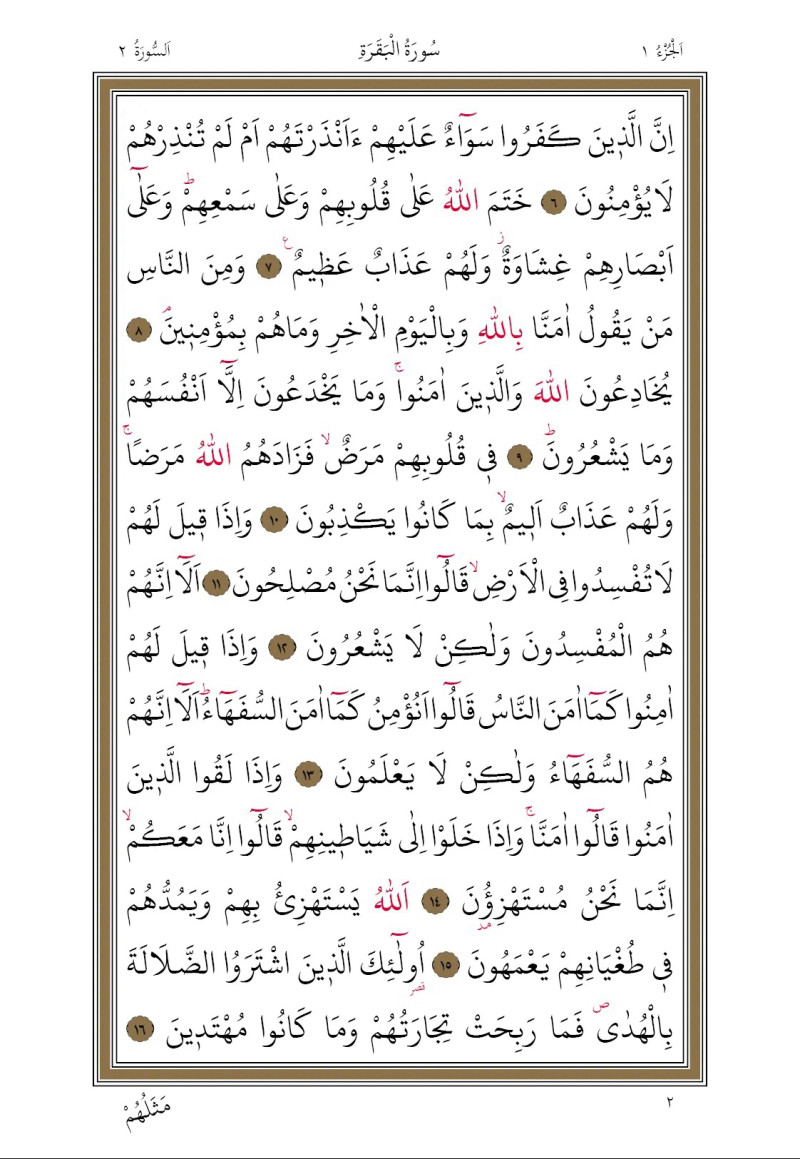 اَلْجُزْءُ ١ سُورَةُ الْبَقَرَةِ اَلسُّورَةُ ٢
اِنَّ الَّذ۪ينَ كَفَرُوا سَوَٓاءٌ عَلَيْهِمْ ءَاَنْذَرْتَهُمْ اَمْ لَمْ تُنْذِرْهُمْ
لَا يُؤْمِنُونَ ﴿٦﴾ خَتَمَ اللّٰهُ عَلٰى قُلُوبِهِمْ وَعَلٰى سَمْعِهِمْۜ وَعَلٰٓى
اَبْصَارِهِمْ غِشَاوَةٌۘ وَلَهُمْ عَذَابٌ عَظ۪يمٌ ﴿٧﴾ وَمِنَ النَّاسِ
مَنْ يَقُولُ اٰمَنَّا بِاللّٰهِ وَبِالْيَوْمِ الْاٰخِرِ وَمَا هُمْ بِمُؤْمِن۪ينَۢ ﴿٨﴾
يُخَادِعُونَ اللّٰهَ وَالَّذ۪ينَ اٰمَنُواۚ وَمَا يَخْدَعُونَ اِلَّٓا اَنْفُسَهُمْ
وَمَا يَشْعُرُونَۜ ﴿٩﴾ ف۪ي قُلُوبِهِمْ مَرَضٌۙ فَزَادَهُمُ اللّٰهُ مَرَضًاۚ
وَلَهُمْ عَذَابٌ اَل۪يمٌۙ بِمَا كَانُوا يَكْذِبُونَ ﴿١٠﴾ وَاِذَا ق۪يلَ لَهُمْ
لَا تُفْسِدُوا فِي الْاَرْضِۙ قَالُٓوا اِنَّمَا نَحْنُ مُصْلِحُونَ ﴿١١﴾ اَلَٓا اِنَّهُمْ
هُمُ الْمُفْسِدُونَ وَلٰكِنْ لَا يَشْعُرُونَ ﴿١٢﴾ وَاِذَا ق۪يلَ لَهُمْ
اٰمِنُوا كَمَٓا اٰمَنَ النَّاسُ قَالُٓوا اَنُؤْمِنُ كَمَٓا اٰمَنَ السُّفَهَٓاءُۜ اَلَٓا اِنَّهُمْ
هُمُ السُّفَهَٓاءُ وَلٰكِنْ لَا يَعْلَمُونَ ﴿١٣﴾ وَاِذَا لَقُوا الَّذ۪ينَ
اٰمَنُوا قَالُٓوا اٰمَنَّاۚ وَاِذَا خَلَوْا اِلٰى شَيَاط۪ينِهِمْۙ قَالُٓوا اِنَّا مَعَكُمْۙ
اِنَّمَا نَحْنُ مُسْتَهْزِؤُ۫نَ ﴿١٤﴾ اَللّٰهُ يَسْتَهْزِئُ بِهِمْ وَيَمُدُّهُمْ
ف۪ي طُغْيَانِهِمْ يَعْمَهُونَ ﴿١٥﴾ اُو۬لٰٓئِكَ الَّذ۪ينَ اشْتَرَوُا الضَّلَالَةَ
بِالْهُدٰىۖ فَمَا رَبِحَتْ تِجَارَتُهُمْ وَمَا كَانُوا مُهْتَد۪ينَ ﴿١٦﴾
٢ مَثَلُهُمْ